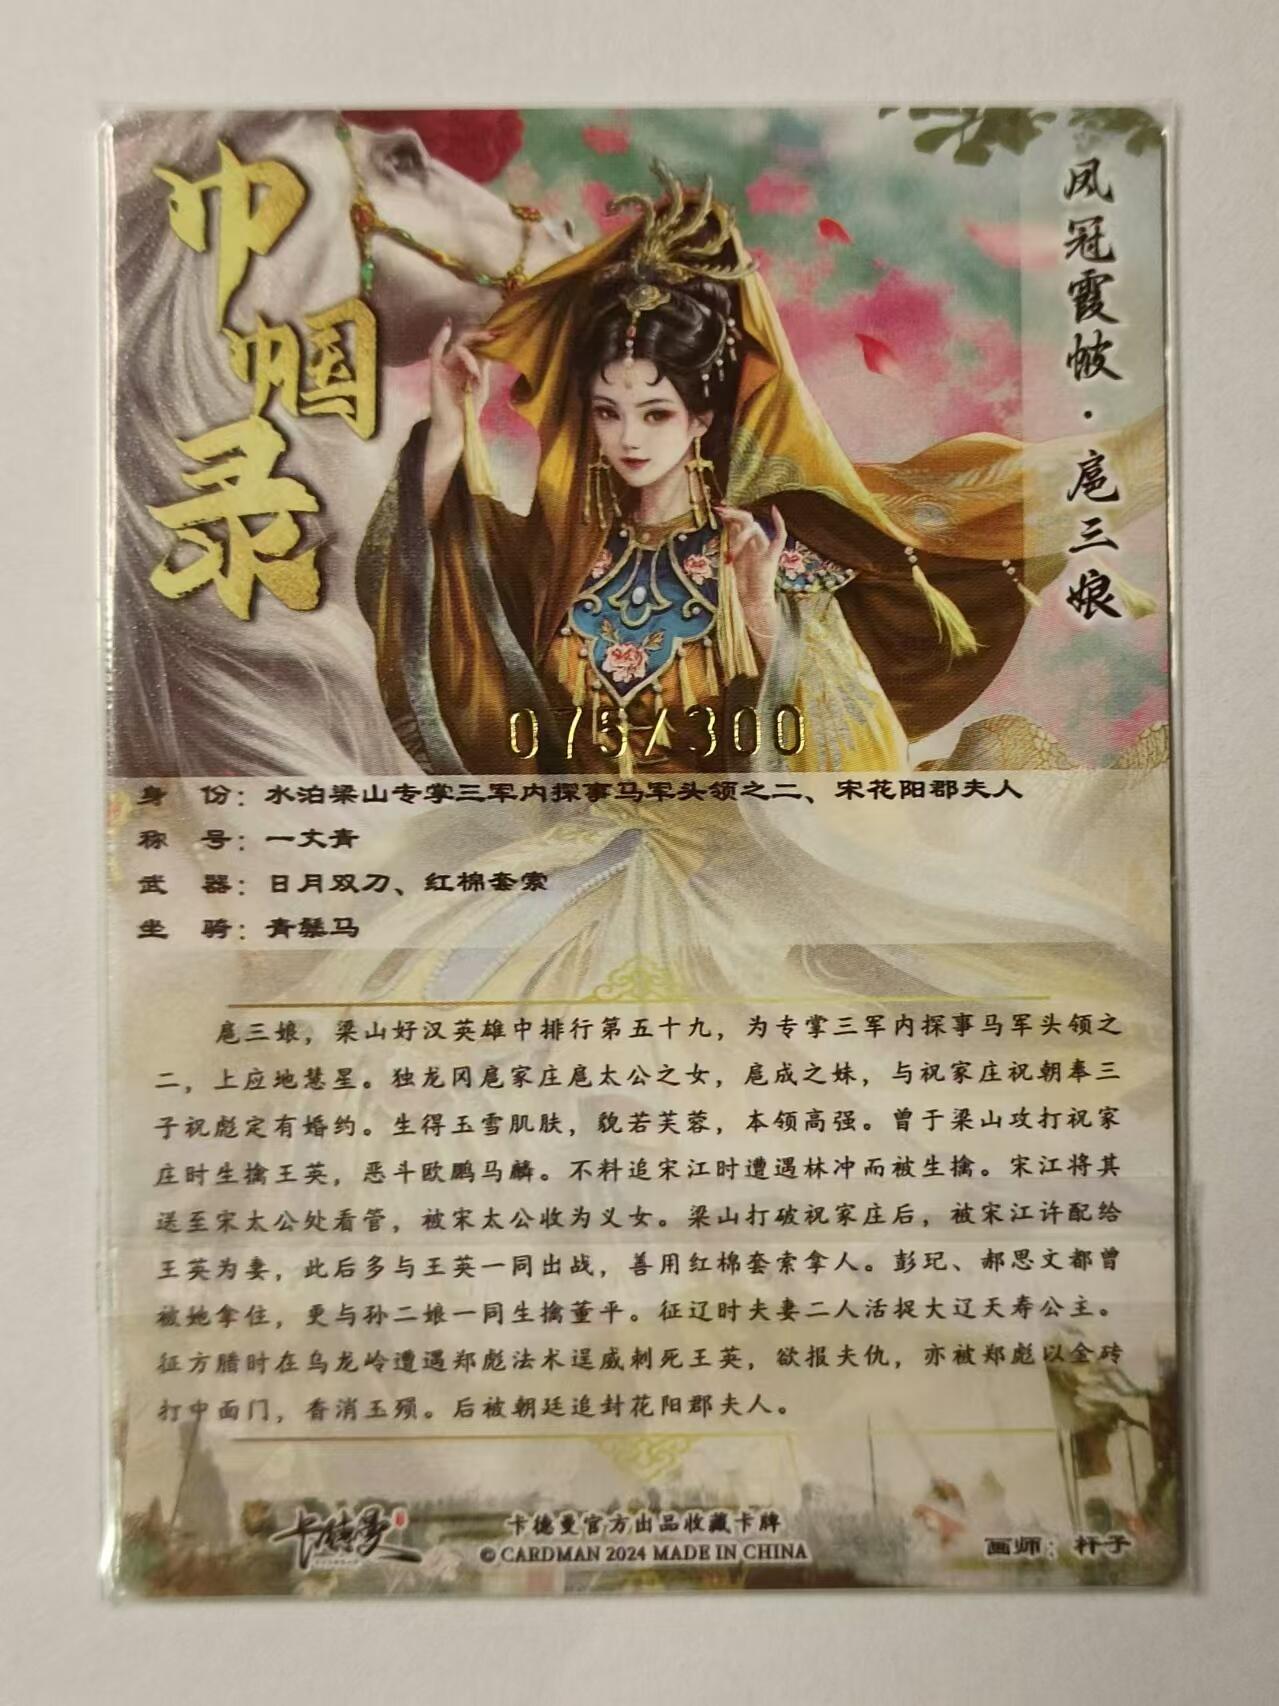 巾帼录
凤冠霞帔·扈三娘
075/300
身 份：水泊梁山专掌三军内探事马军头领之二、宋花阳郡夫人
称 号：一丈青
武 器：日月双刀、红棉套索
坐 骑：青鬃马
扈三娘，梁山好汉英雄中排行第五十九，为专掌三军内探事马军头领之
二，上应地慧星。独龙冈扈家庄扈太公之女，扈成之妹，与祝家庄祝朝奉三
子祝彪定有婚约。生得玉雪肌肤，貌若芙蓉，本领高强。曾于梁山攻打祝家
庄时生擒王英，恶斗欧鹏马麟。不料追宋江时遭遇林冲而被生擒。宋江将其
送至宋太公处看管，被宋太公收为义女。梁山打破祝家庄后，被宋江许配给
王英为妻，此后多与王英一同出战，善用红棉套索拿人。彭玘、郝思文都曾
被她拿住，更与孙二娘一同生擒董平。征辽时夫妻二人活捉大辽天寿公主。
征方腊时在乌龙岭遭遇郑彪法术逞威刺死王英，欲报夫仇，亦被郑彪以金砖
打中面门，香消玉殒。后被朝廷追封花阳郡夫人。
卡德曼
卡德曼官方出品收藏卡牌
© CARDMAN 2024 MADE IN CHINA
画师：杆子